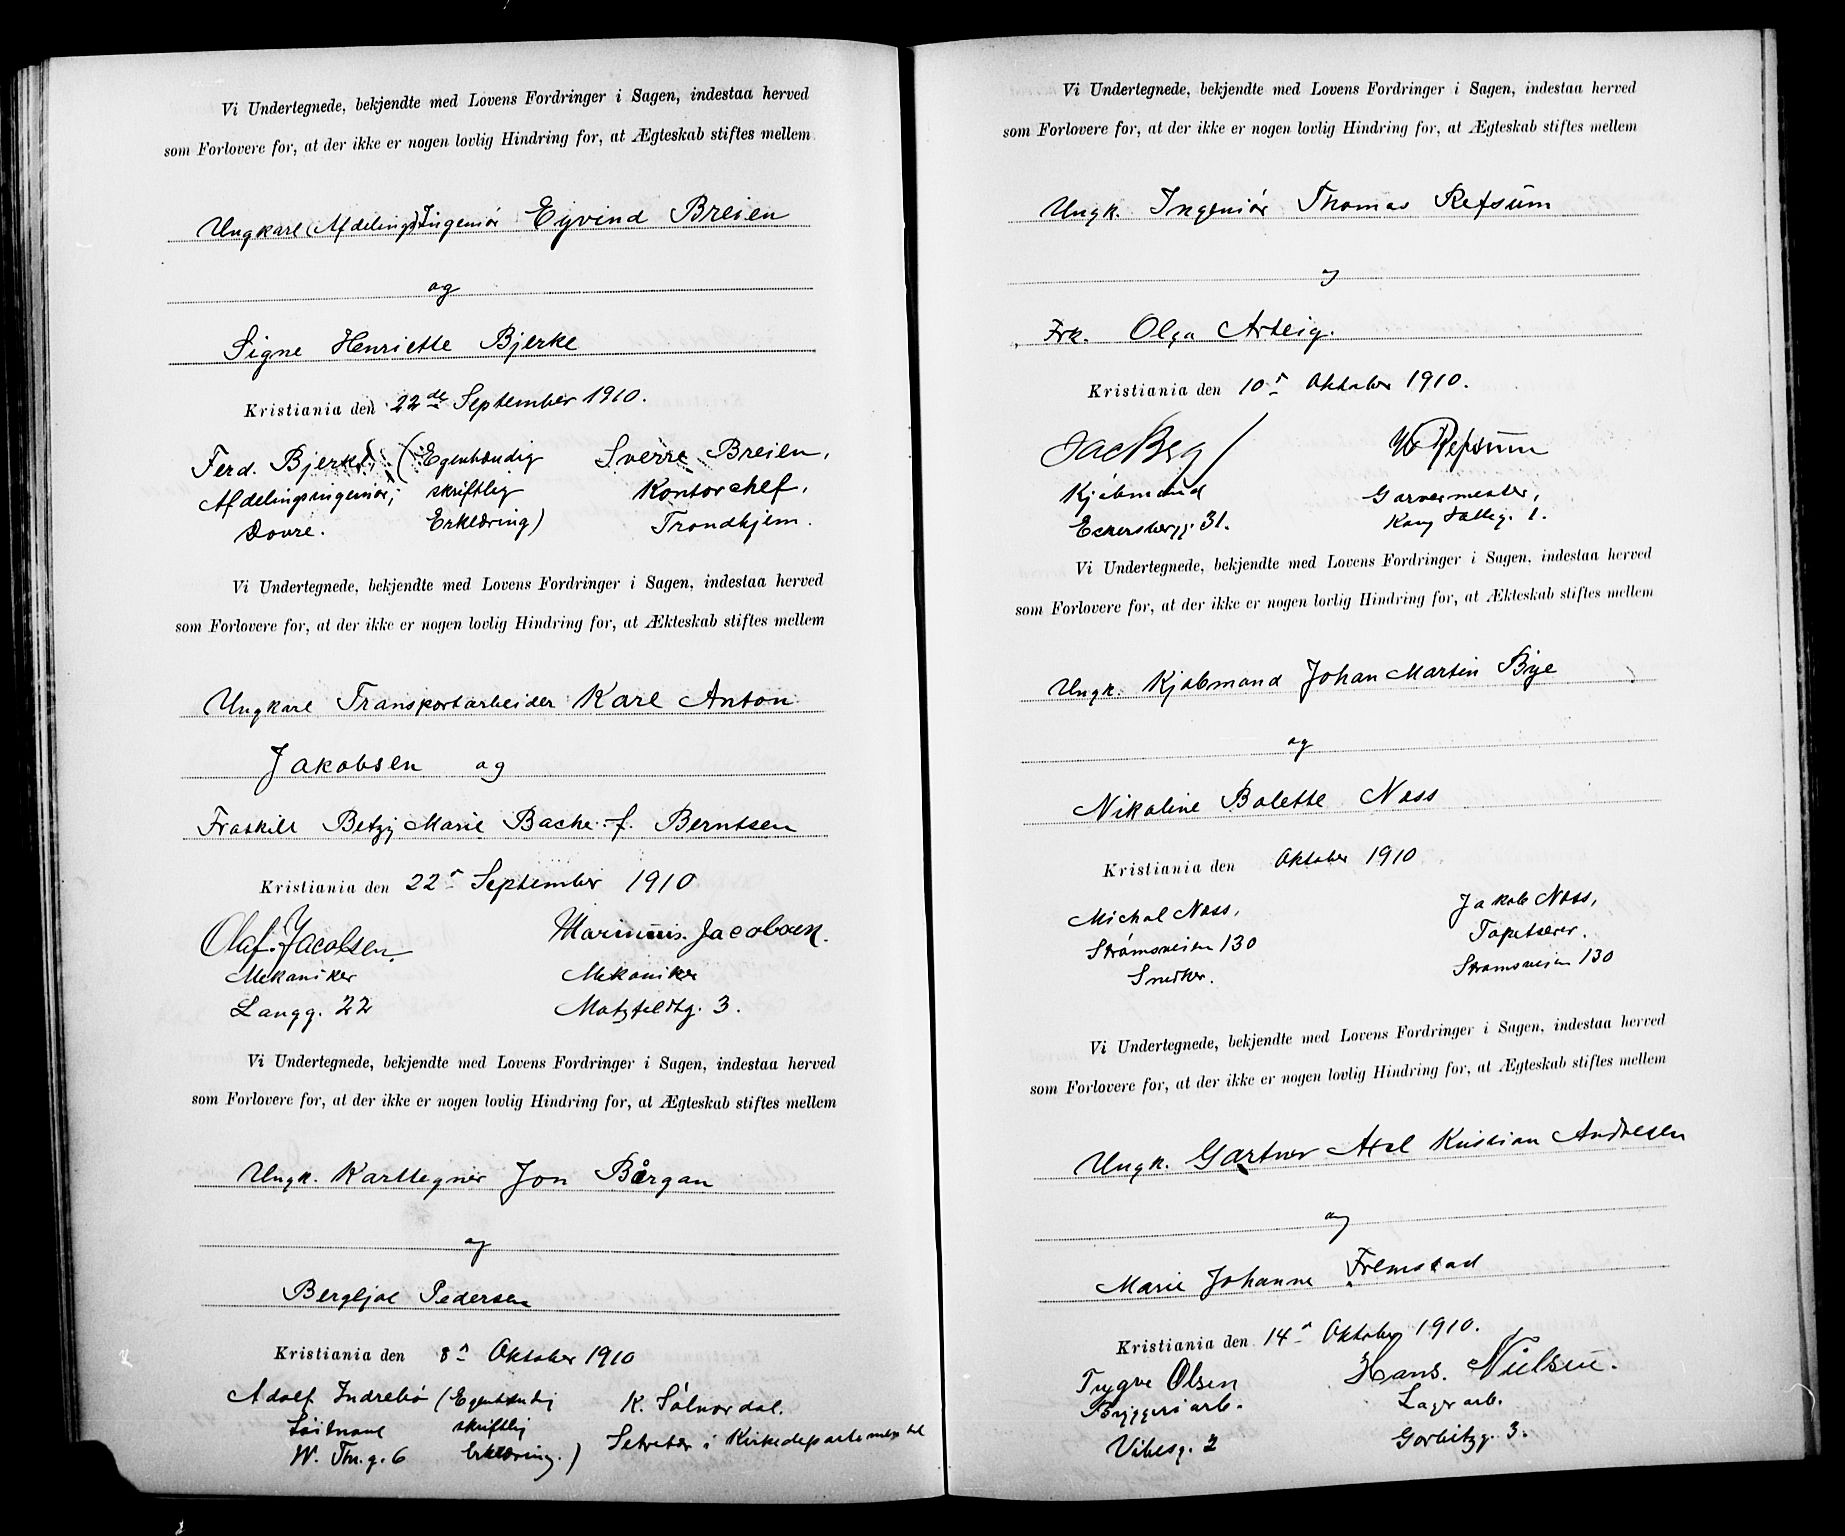 Vi Undertegnede, bekjendte med Lovens Fordringer i Sagen, indestaa herved
som Forlovere for, at der ikke er nogen lovlig Hindring for, at Ægteskab stiftes mellem
Ungkarl (Afdelings)Ingeniør Eyvind Breien
og
Signe Henriette Bjerke
Kristiania den 22de September 1910.
Ferd. Bjerke, (Egenhændig Sverre Breien,
Afdelingsingeniør, skriftlig Kontorchef,
Dovre. Erklæring) Trondhjem.
Vi Undertegnede, bekjendte med Lovens Fordringer i Sagen, indestaa herved
som Forlovere for, at der ikke er nogen lovlig Hindring for, at Ækteskab stiftes mellem
Ungkarl Transportarbeider Karl Anton
Jakobsen og
Fraskilt Betzy Marie Bache f. Berntsen
Kristiania den 22' September 1910
Olaf Jacobsen. Marinius Jacobsen.
Mekaniker Mekaniker
Langg. 22 Motzfeldtg. 3.
Vi Undertegnede, bekjendte med Lovens Fordringer i Sagen, indestaa herved
som Forlovere for, at der ikke er nogen lovlig Hindring for, at Ægteskab stiftes mellem
Ungk. Karttegner Jon Bårgan
og
Bergljot Pedersen
Kristiania den 8' Oktober 1910
Adolf Indrebø (Egenhændig K. Sølnordal.
Løitnant skriftlig Sekretær i Kirkedepartementet
W. Thr.g. 6 Erklæring.)
Vi Undertegnede, bekjendte med Lovens Fordringer i Sagen, indestaa herved
som Forlovere for, at der ikke er nogen lovlig Hindring for, at Ægteskab stiftes mellem
Ungk. Ingeniør Thomas Refsum
og
Frk. Olga Arteig.
Kristiania den 10' Oktober 1910.
Jac Berg Refsum
Kjøbmand Garvermester,
Eckersbergg. 31.
Vi Undertegnede, bekjendte med Lovens Fordringer i Sagen, indestaa herved
som Forlovere for, at der ikke er nogen lovlig Hindring for, at Ækteskab stiftes mellem
Ungk. Kjøbmand Johan Martin Bye
og
Nikoline Bolette Næss
Kristiania den Oktober 1910
Michal Næss, Jakob Næss,
Strømsveien 130 Tapetserer.
Snedker. Strømsveien 130
Vi Undertegnede, bekjendte med Lovens Fordringer i Sagen, indestaa herved
som Forlovere for, at der ikke er nogen lovlig Hindring for, at Ægteskab stiftes mellem
Ungk. Gartner Axel Kristian Andresen
og
Marie Johanne Fremstad
Kristiania den 14' Oktober 1910.
Trygve Olsen Hans. Nielsen.
Bryggeriarb. Lagerarb.
Vibesg. 2 Gorbitzg. 3.